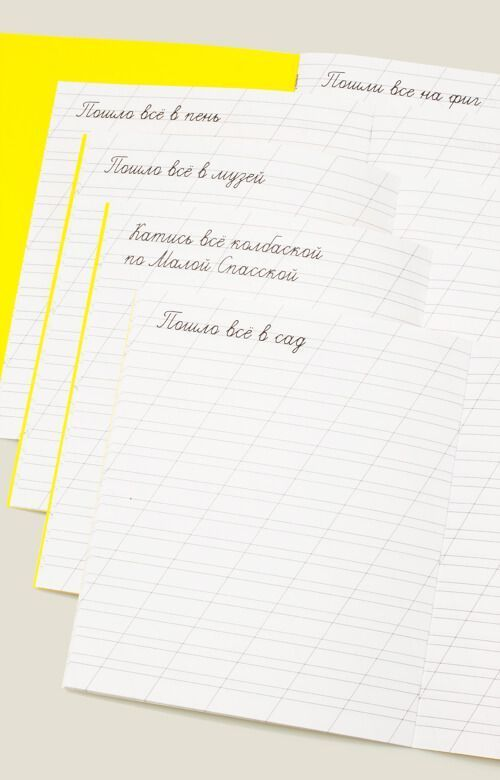 Пошли все на фиг
Пошло всё в пень
Пошло всё в музей
Катись всё колбаской
по Малой Спасской
Пошло всё в сад